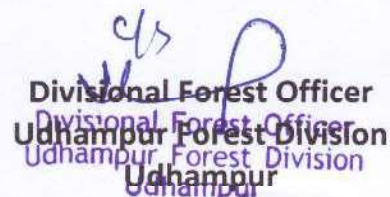 c/s
Divisional Forest Officer
Udhampur Forest Division
Udhampur
Divisional Forest Officer
Udhampur Forest Division
Udhampur